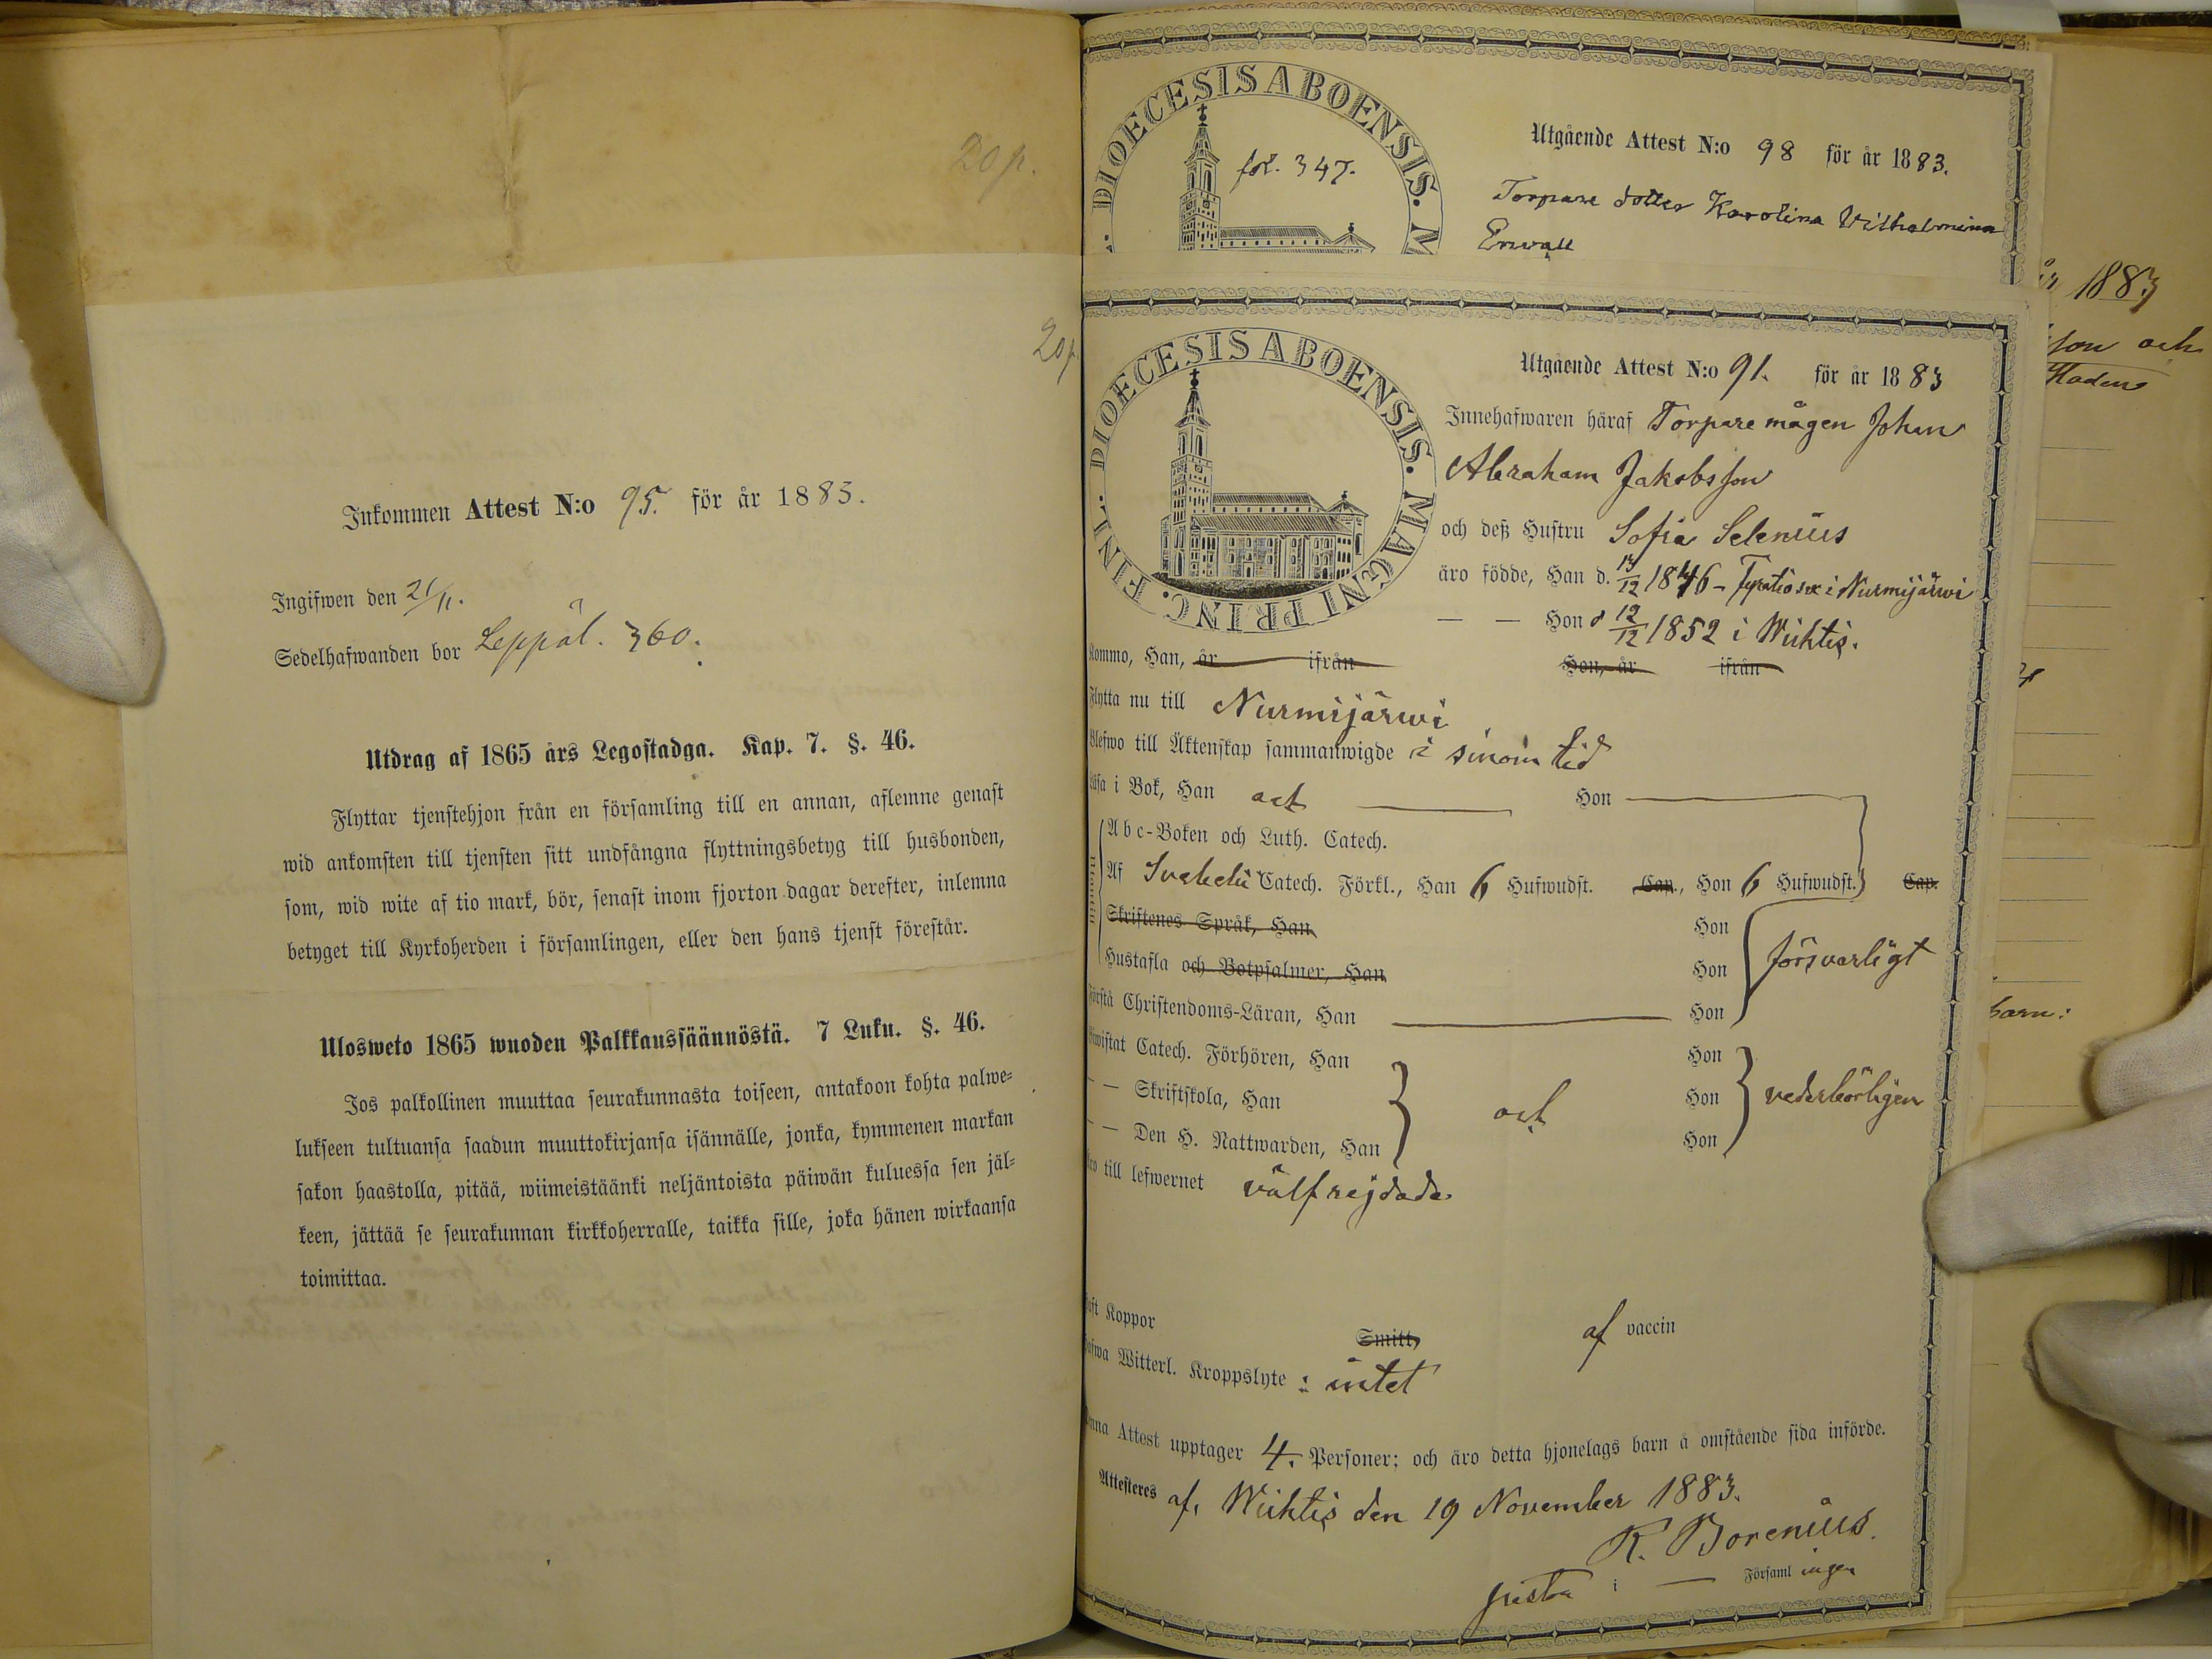 20 p.
20 p
Inkommen Attest N:o 95. för år 1883.
Ingifwen den 21/11.
Sedelhafwanden bor Leppäl. 360.
Utdrag af 1865 års Legostadga. Kap. 7. §. 46.
Flyttar tjenstehjon från en församling till en annan, aflemne genast
wid ankomsten till tjensten sitt undfångna flyttningsbetyg till husbonden,
som, wid wite af tio mark, bör, senast inom fjorton dagar derefter, inlemna
betyget till Kyrkoherden i församlingen, eller den hans tjenst förestår.
Ulosweto 1865 wuoden Palkkaussäännöstä. 7 Luku. §. 46.
Jos palkollinen muuttaa seurakunnasta toiseen, antakoon kohta palwe=
lukseen tultuansa saadun muuttokirjansa isännälle, jonka, kymmenen markan
sakon haastolla, pitää, wiimeistäänki neljäntoista päiwän kuluessa sen jäl=
keen, jättää se seurakunnan kirkkoherralle, taikka sille, joka hänen wirkaansa
toimittaa.
DIOECESIS ABOENSIS. M
fol. 347.
Utgående Attest N:o 98 för år 1883.
Torpare dotter Karolina Vilhelmina
Enwall
DIOECESIS ABOENSIS. MAGNI PRINC. FINL.
Utgående Attest N:o 91. för år 1883
Innehafwaren häraf Torpare mågen Johan
Abraham Jakobsson
och deß Hustru Sofia Selenius
äro födde, Han d. 12 1846 - i Nurmijärwi
— — Hon d 12/12 1852 i Wichtis.
Kommo, Han, år ifrån Hon, år ifrån
Flytta nu till Nurmijärwi
Blefwo till Äktenskap sammanwigde i sinom tid
Läsa i Bok, Han och Hon
Abc-Boken och Luth. Catech.
Af Svebelii Catech. Förkl., Han 6 Hufwudst. Cap., Hon 6 Hufwudst. Cap.
Skriftenes Språk, Han Hon
Hustafla och Botpsalmer, Han Hon försvarligt
Förstå Christendoms-Läran, Han Hon
Biwistat Catech. Förhören, Han Hon
— — Skriftskola, Han och Hon vederbörligen
— — Den H. Nattwarden, Han Hon
Äro till lefwernet välfrejdade
Haft Koppor Smitt, af vaccin
Hafwa Witterl. Kroppslyte : intet
Denna Attest upptager 4. Personer; och äro detta hjonelags barn å omstående sida införde.
Attesteres af, Wichtis den 19 November 1883.
R. Borenius.
i — Församlingen
1883
son och
barn: